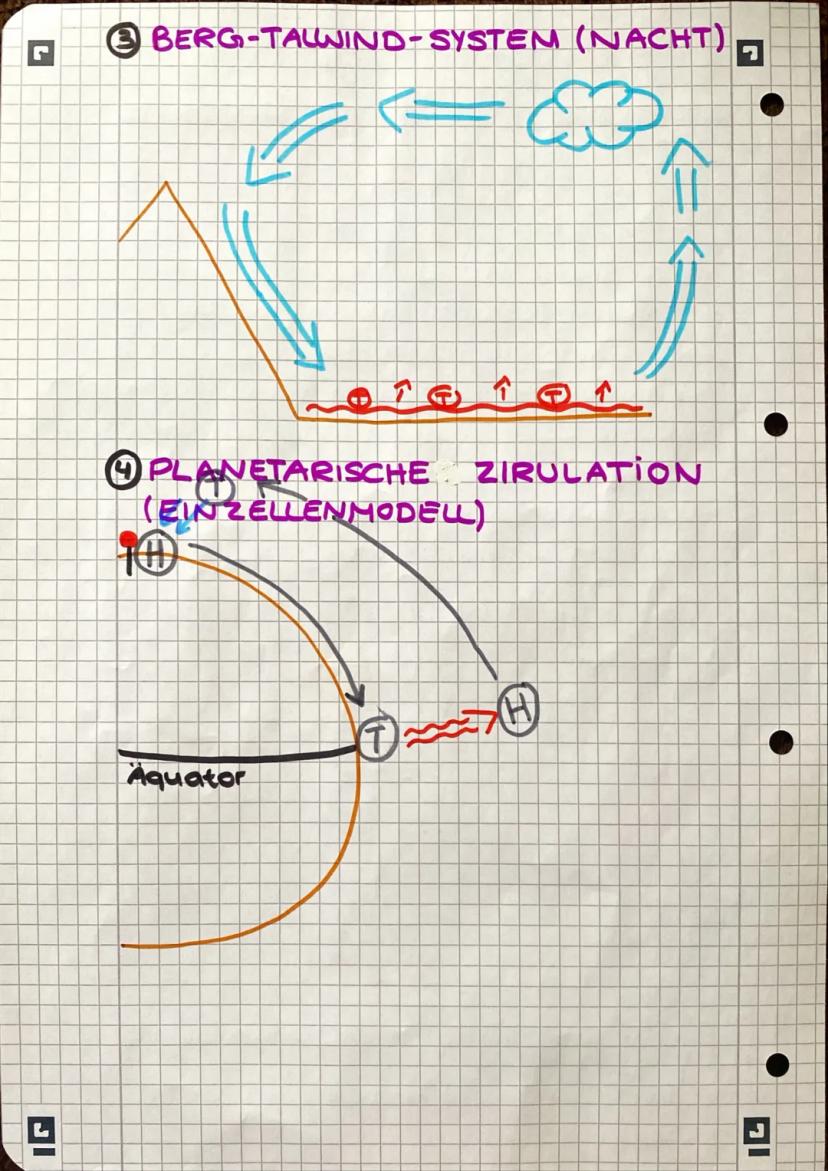 3 BERG-TALWIND-SYSTEM (NACHT)
T T T
4 PLANETARISCHE ZIRULATION
(EINZELLENMODELL)
T
H
H
T
Äquator